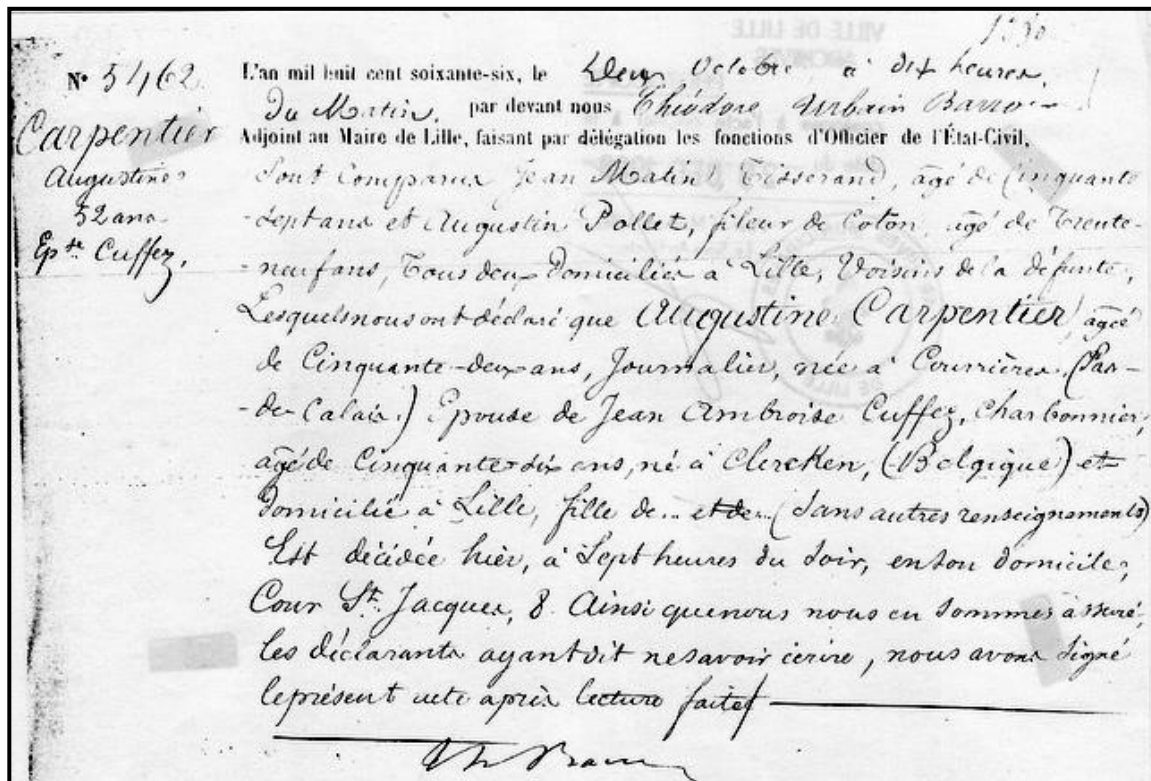 1330
N° 5462
Carpentier
Augustine
52 ans
Ep.se Cuffez,
L'an mil huit cent soixante-six, le Deux Octobre à dix heures
Du Matin, par devant nous Théodore Urbain Barrois
Adjoint au Maire de Lille, faisant par délégation les fonctions d'Officier de l'État-Civil,
Sont Comparus Jean Matin Tisserand, agé de Cinquante
-Sept ans et Augustin Pollet, fileur de Coton, agé de Trente-
-neuf ans, Tous deux Domiciliés à Lille, Voisins de la défunte,
Lesquels nous ont déclaré que Augustine Carpentier, agée
de Cinquante-deux ans, Journalier, née à Courrières (Pas-
-de-Calais.) Epouse de Jean Ambroise Cuffez, Charbonnier,
agé de Cinquante-six ans, né à Clercken, (Belgique) et
Domicilié à Lille, fille de... et de... (Sans autres renseignements)
Est décédée hier, à Sept heures du Soir, en son domicile,
Cour St. Jacques, 8. Ainsi que nous nous en sommes assuré,
les déclarants ayant dit ne savoir écrire, nous avons Signé
le présent acte après lecture faite
VILLE DE LILLE
DE LILLE